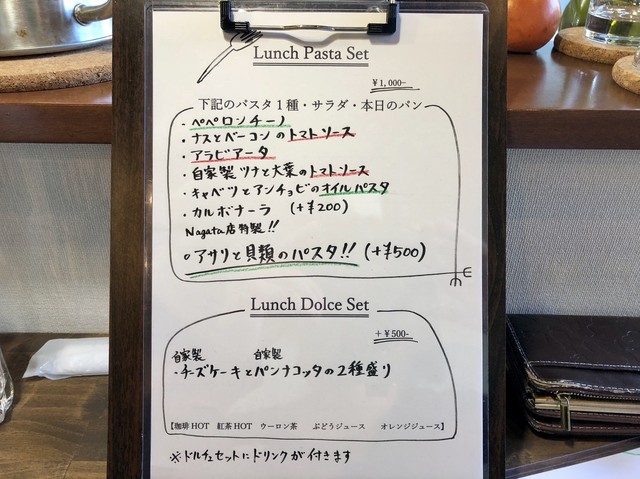 Lunch Pasta Set
¥1,000-
下記のパスタ1種・サラダ・本日のパン
・ペペロンチーノ
・ナスとベーコンのトマトソース
・アラビアータ
・自家製ツナと大葉のトマトソース
・キャベツとアンチョビのオイルパスタ
・カルボナーラ (+¥200)
Nagata店特製!!
○アサリと貝類のパスタ!! (+¥500)
Lunch Dolce Set
+¥500-
自家製 自家製
・チーズケーキとパンナコッタの2種盛り
【珈琲HOT 紅茶HOT ウーロン茶 ぶどうジュース オレンジジュース】
※ドルチェセットにドリンクが付きます